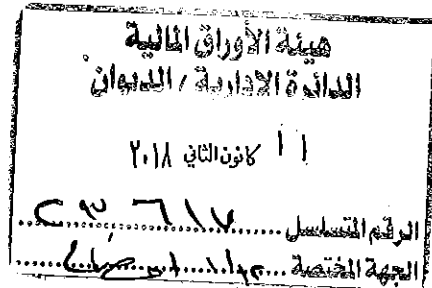 هيئة الأوراق المالية
الدائرة الإدارية / الديوان
١١ كانون الثاني ٢٠١٨
الرقم المتسلسل
الجهة المختصة